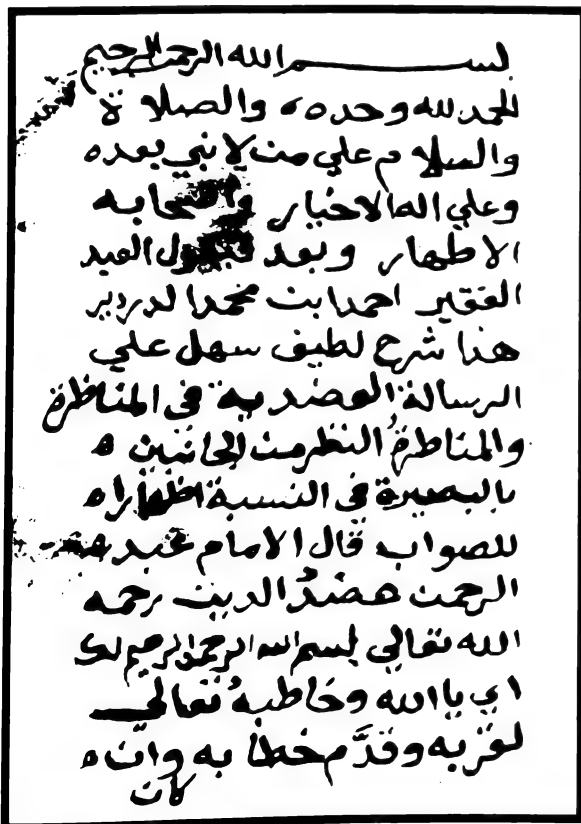 بسم الله الرحمن الرحيم
الحمد لله وحده والصلاة
والسلام علي من لا نبي بعده
وعلي اله الاخيار واصحابه
الاطهار وبعد فيقول العبد
الفقير احمد ابن محمد الدردير
هذا شرح لطيف سهل علي
الرسالة العضدية في المناظرة
والمناظرةُ النظر من الجانبين ه
بالبصيرة في النسبة اظهارا ه
للصواب قال الامام عبد ه
الرحمن عضدُ الدين رحمه
الله تعالي بسم الله الرحمن الرحيم لك
اي يا الله وخاطبهُ تعالي
لقربه وقدَّم خطابه وان ه
كان